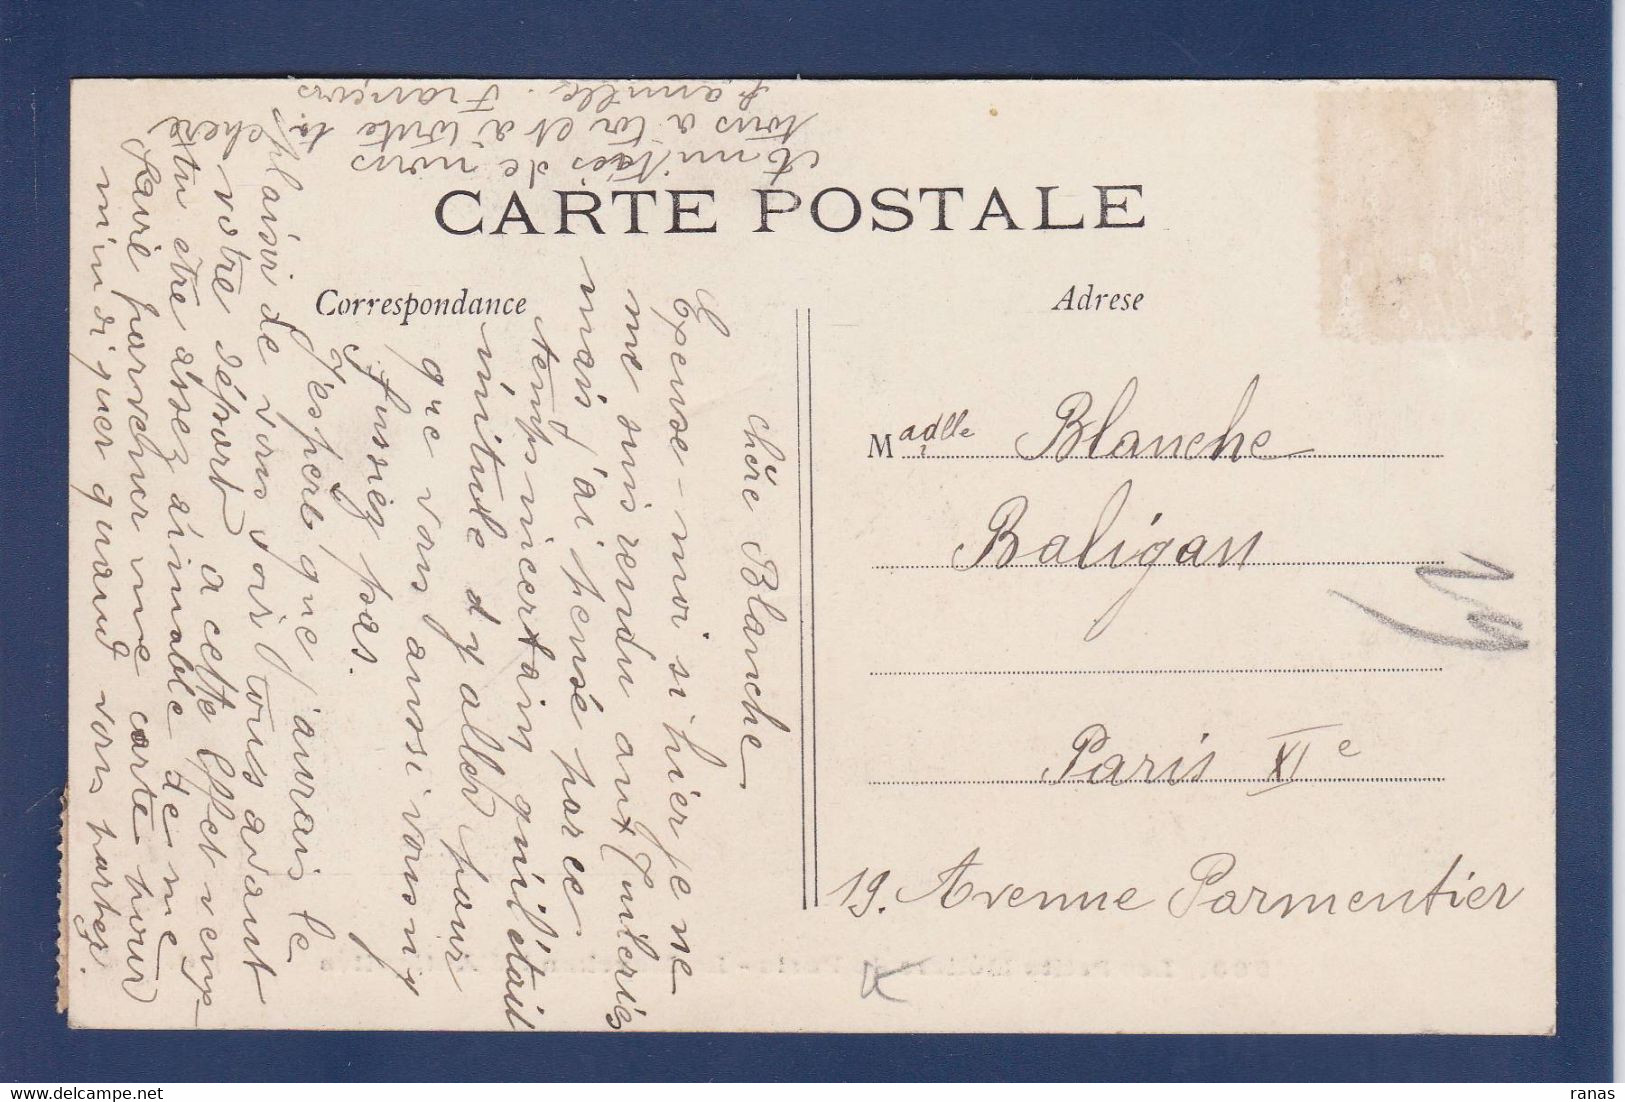 CARTE POSTALE
Correspondance
Adrese
Madlle Blanche
Baligan
Paris XIe
19. Avenue Parmentier
Chère Blanche
Excuse-moi si hier je ne
me suis rendu aux Tuileries
mais j'ai pensé parce
temps incertain, qu'il était
inutile d'y aller pour
que vous aussi vous n'y
fussiez pas.
J'espère que j'aurais le
plaisir de vous voir tous avant
votre départ a cette effet veux
tu être assez aimable de me
faire parvenir une carte pour
m'indiquer quand vous partez.
Amitiées de nous
tous a toi et à toute ta chère
famille. François
ranas